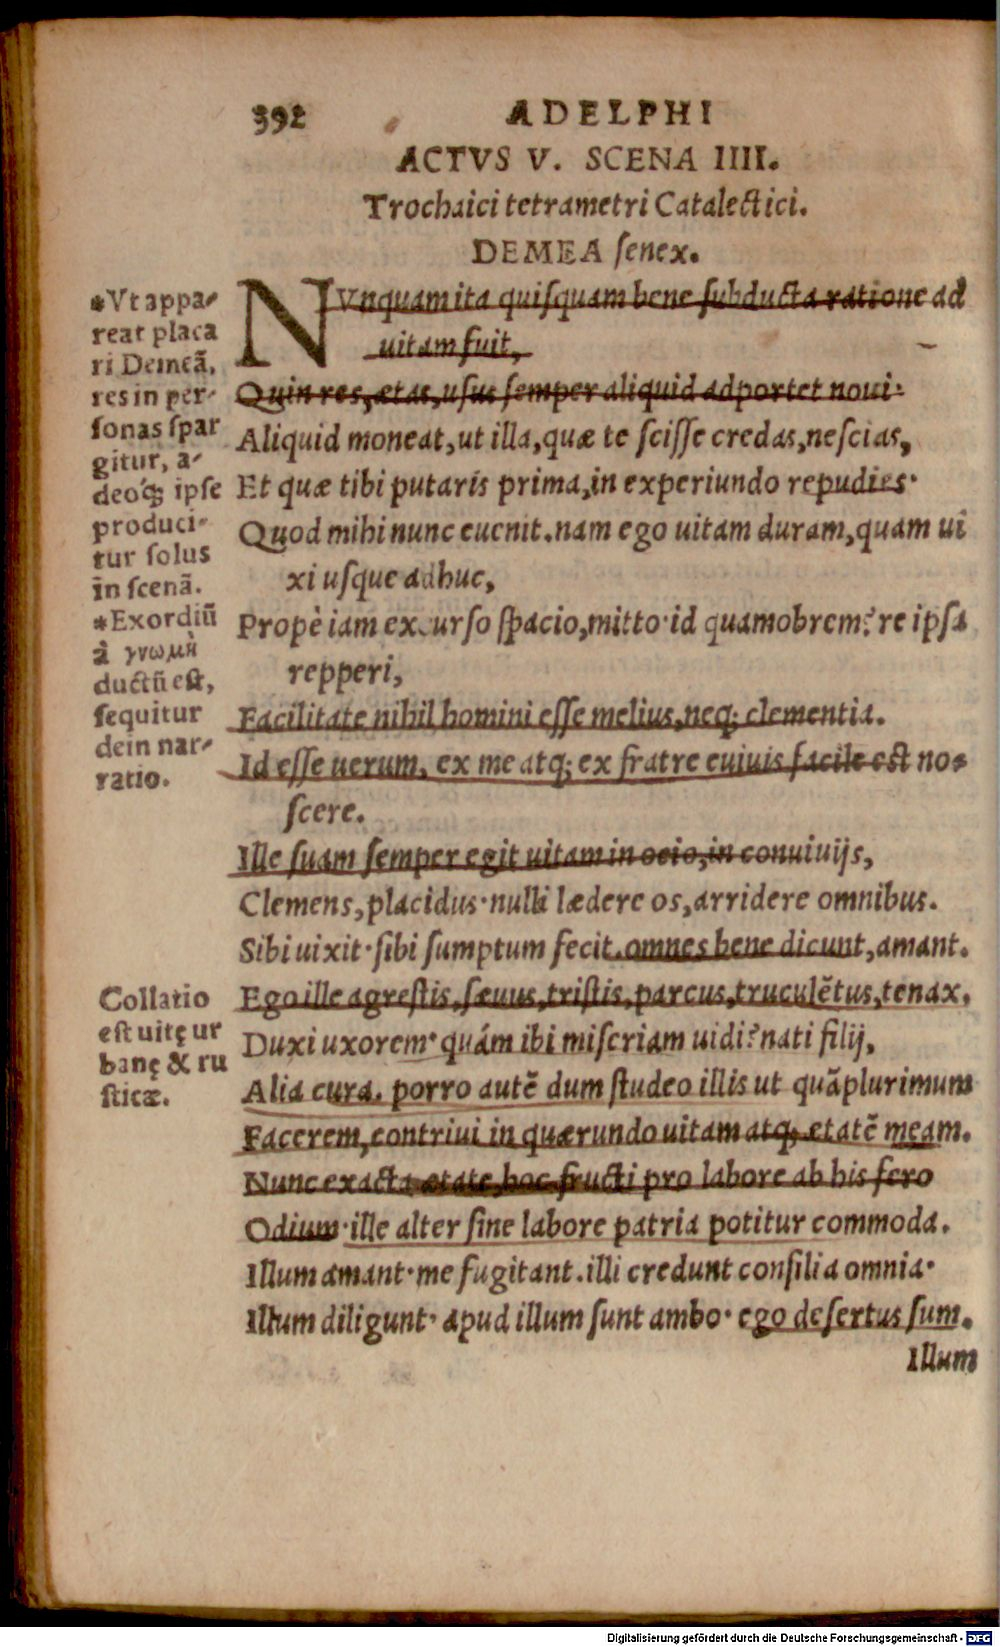 392 ADELPHI
ACTVS V. SCENA IIII.
Trochaici tetrametri Catalectici.
DEMEA ſenex.
NVnquam ita quiſquam bene ſubducta ratione ad
uitam fuit,
Quin res, ætas, uſus ſemper aliquid adportet noui·
Aliquid moneat, ut illa, quæ te ſciſſe credas, neſcias,
Et quæ tibi putarís prima, in experiundo repudies·
Quod mihi nunc euenit. nam ego uitam duram, quam ui
xi uſque adhuc,
Propè iam excurſo ſpacio, mitto· id quamobrem? re ipſa
repperi,
Facilitate nihil homini eſſe melius, neq; clementia.
Id eſſe uerum, ex me atq; ex fratre cuiuis facile est no-
ſcere.
Ille ſuam ſemper egit uitam in ocio, in conuiuijs,
Clemens, placidus· nulli lædere os, arridere omnibus.
Sibi uixit· ſibi ſumptum fecit. omnes bene dicunt, amant.
Ego ille agreſtis, ſæuus, triſtis, parcus, truculẽtus, tenax,
Duxi uxorem· quám ibi miſeriam uidi? nati filij,
Alia cura. porro autẽ dum ſtudeo illis ut quãplurimum
Facerem, contriui in quærundo uitam atq; etatẽ meam.
Nunc exacta ætate, hoc fructi pro labore ab his fero
Odium· ille alter ſine labore patria potitur commoda.
Illum amant· me fugitant. illi credunt conſilia omnia·
Illum diligunt· apud illum ſunt ambo· ego deſertus ſum.
Illum
*Vt appa-
reat placa
ri Demeã,
res in per-
ſonas ſpar
gitur, a-
deoq́; ipſe
produci-
tur ſolus
in ſcenã.
*Exordiũ
à γνωμῇ
ductũ eſt,
ſequitur
dein nar-
ratio.
Collatio
eſt uitę ur
banę & ru
ſticæ.
Digitalisierung gefördert durch die Deutsche Forschungsgemeinschaft - DFG